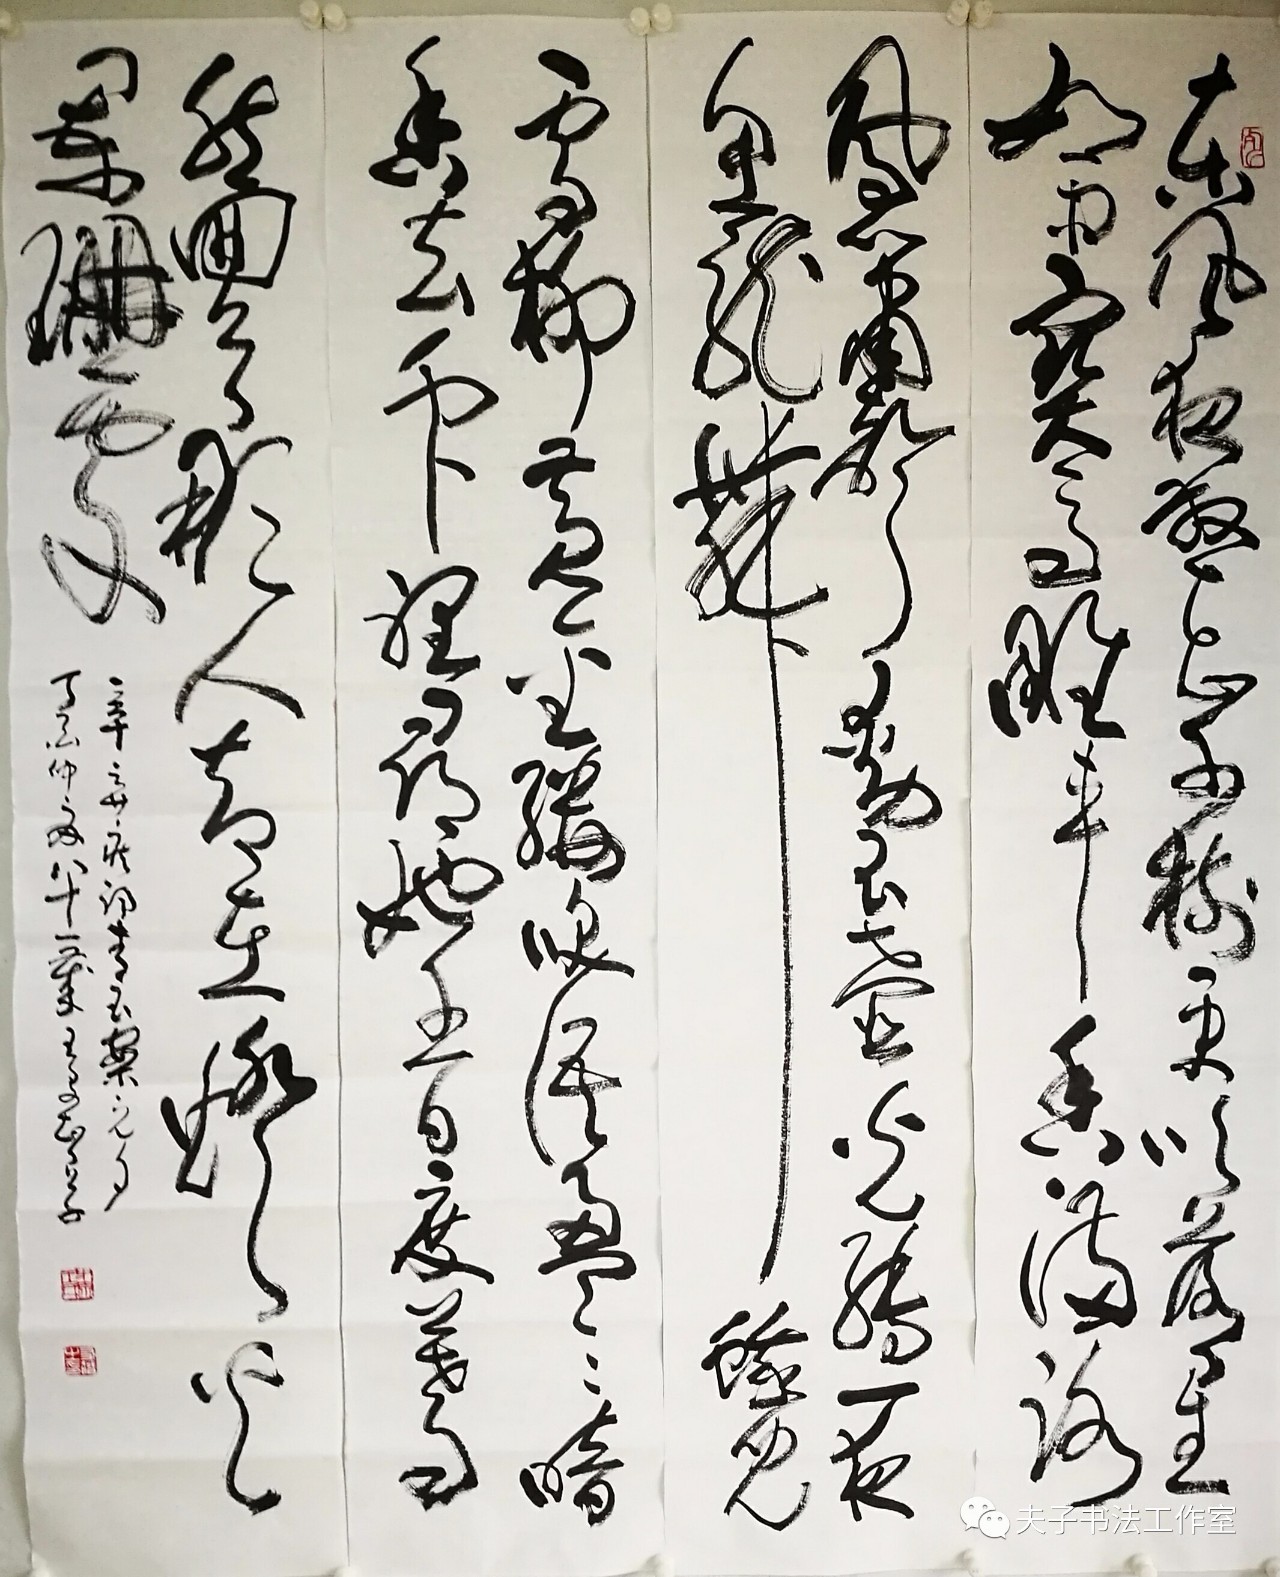 东风夜放花千树更吹落星
如雨宝马雕车香满路
凤箫声动玉壶光转一夜
鱼龙舞蛾儿
雪柳黄金缕笑语盈盈暗
香去众里寻她千百度蓦
然回首那人却在灯火
阑珊处
辛弃疾词青玉案元夕
八十一岁
夫子书法工作室